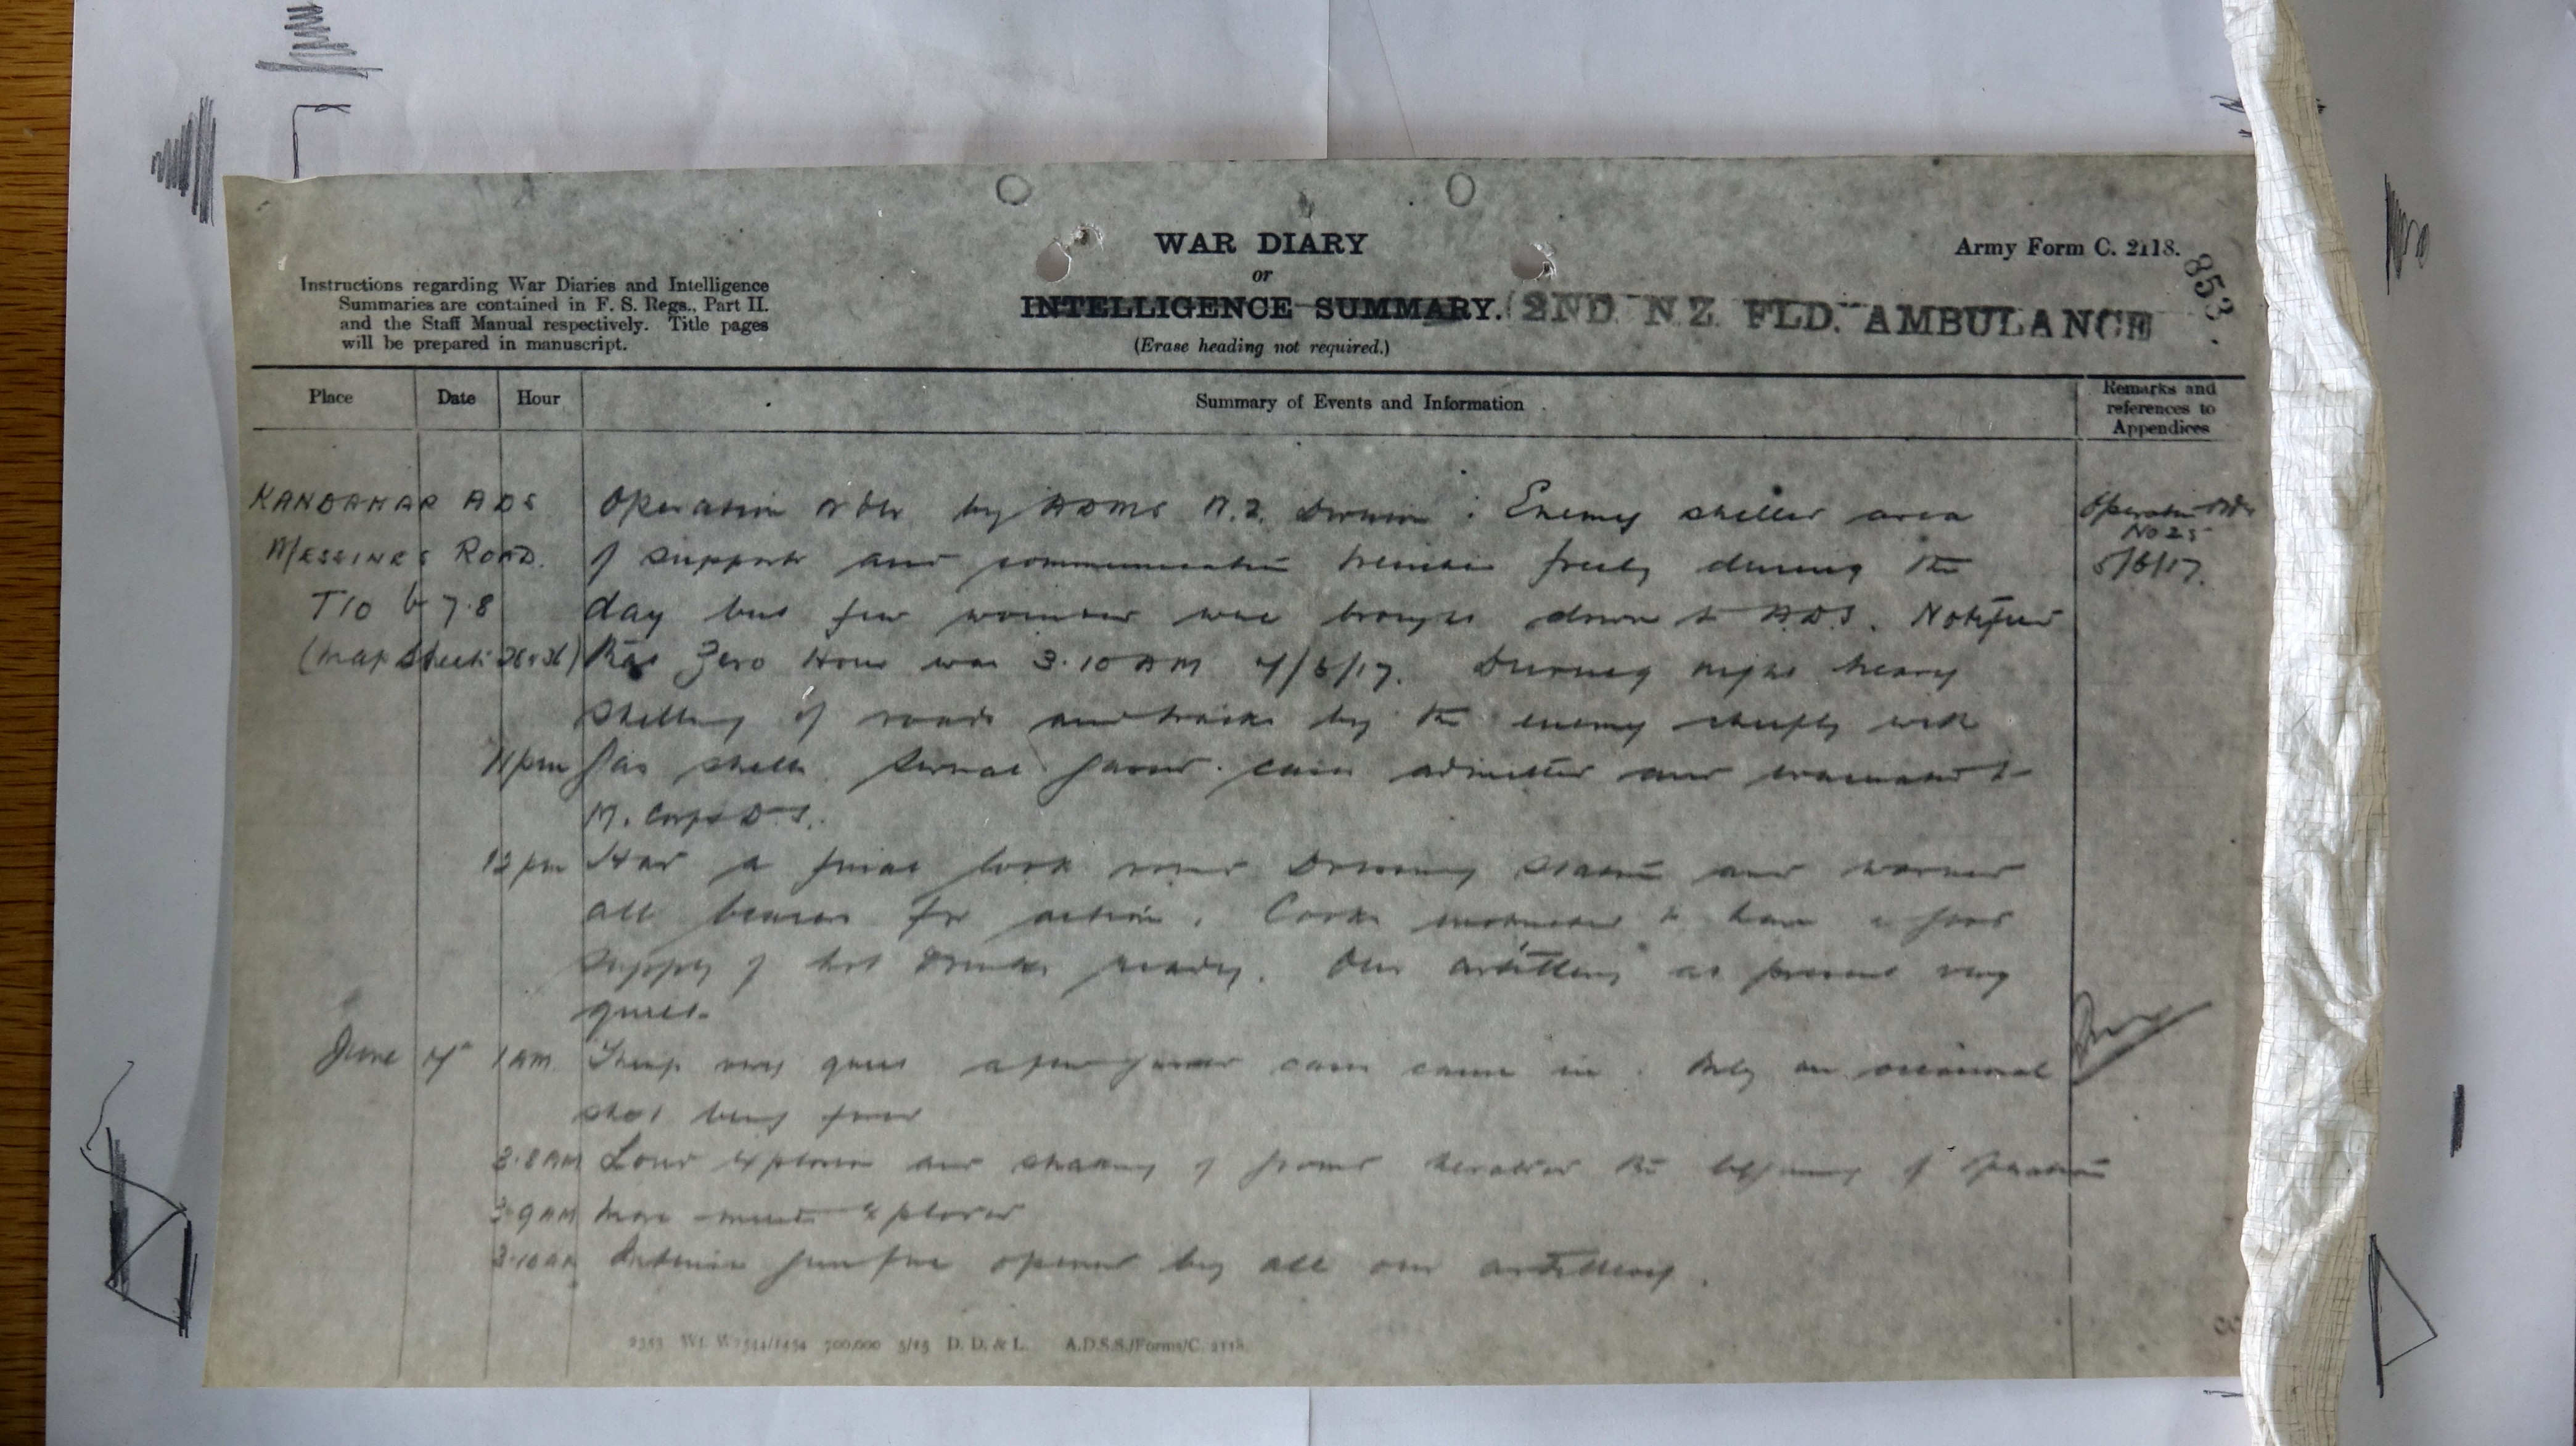 WAR DIARY
or
INTELLIGENCE SUMMARY. (2ND N Z FLD. AMBULANCE
(Erase heading not required.)
Army Form C. 2118.
853.
Instructions regarding War Diaries and Intelligence
Summaries are contained in F. S. Regs., Part II.
and the Staff Manual respectively. Title pages
will be prepared in manuscript.
Place Date Hour Summary of Events and Information Remarks and references to Appendices
KANDAHAR ADS Operation Order by ADMS N.Z. Division : Enemy shelled area Operation Order
No 25
MESSINES ROAD. of supports and communication trenches freely during the 5/6/17.
T10 b 7.8 day but few wounded were brought down to A.D.S. Notified
(Map Sheet 28 & 36) that Zero Hour was 3.10 AM 7/6/17. During night heavy
shelling of roads and tracks by the enemy chiefly with
11 pm Gas shells. Several gassed cases admitted and evacuated to
M. Corps D.S.
12 pm Had a final look round Dressing Station and warned
all bearers for action. Cooks instructed to have a good
supply of hot drinks ready. Our artillery at present very
quiet.
June 7th 1 AM Things very quiet a few gassed cases came in. Only an occasional
shot being fired
3.8 AM Loud explosion and shaking of ground heralded the beginning of operations
3.9 AM More mines exploded
3.10 AM Intense gunfire opened by all our artillery.
2353 Wt. W2544/1454 700,000 5/15 D. D. & L. A.D.S.S./Forms/C. 2118.